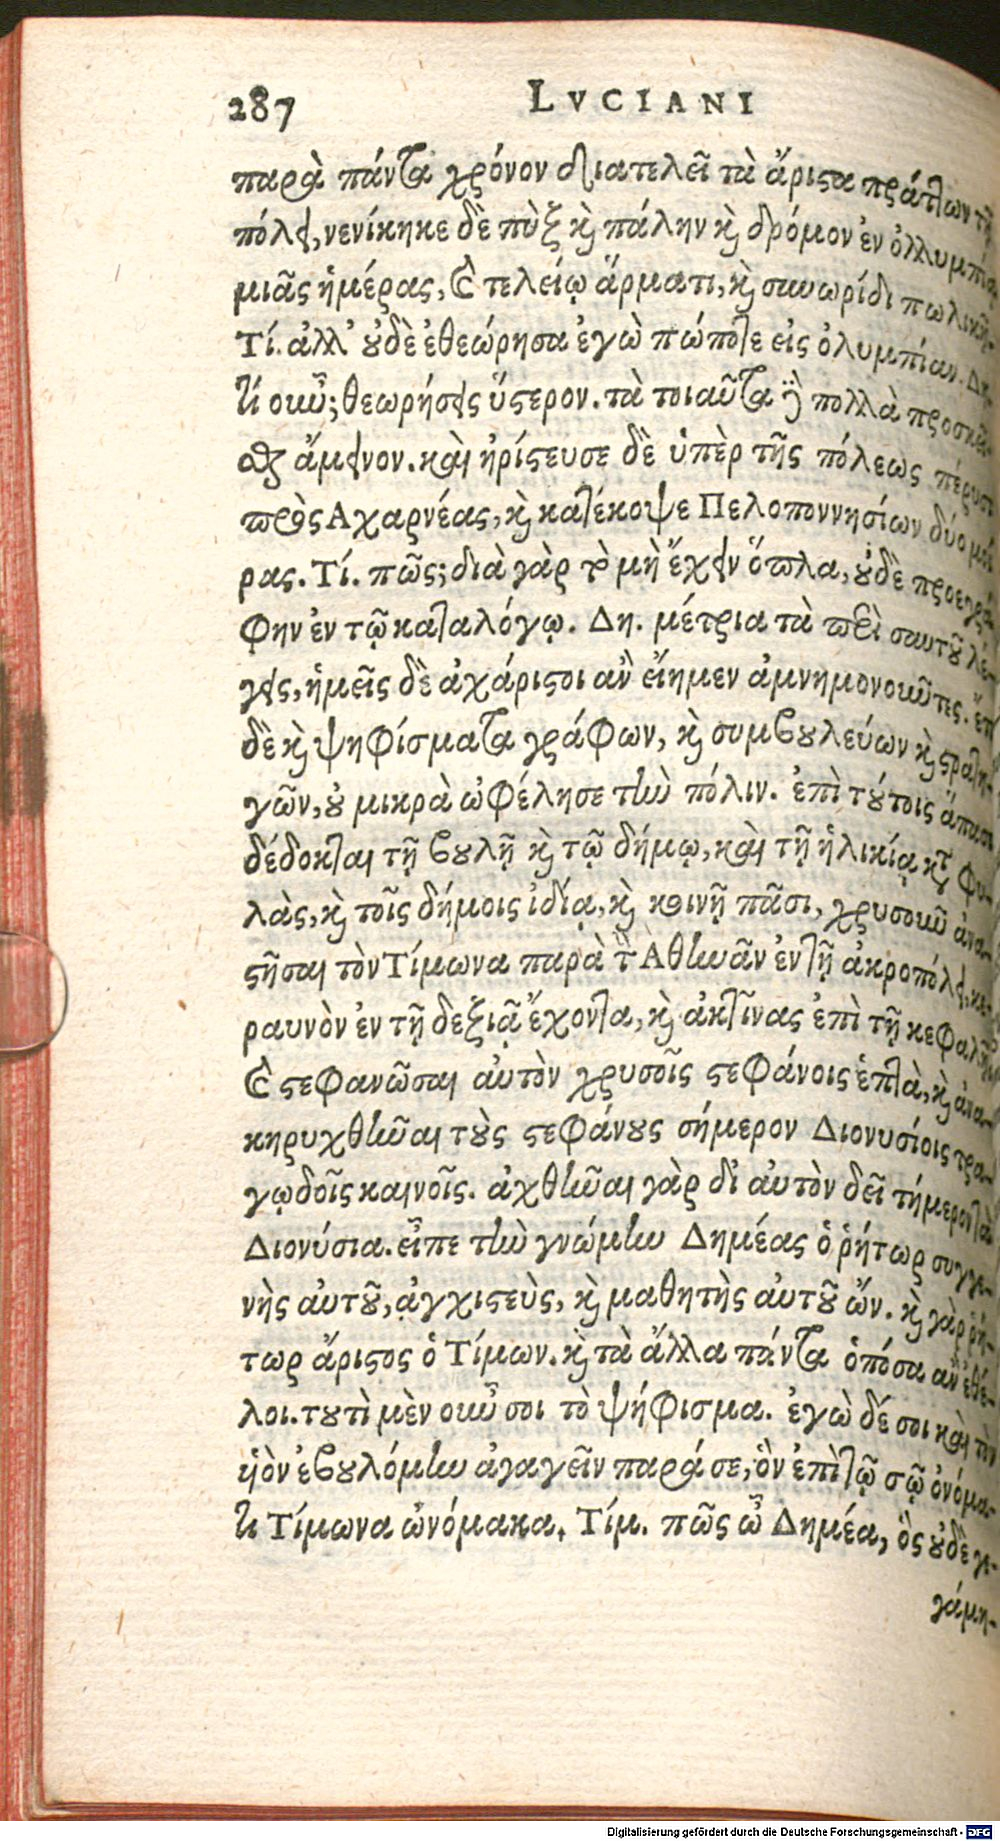 287 LVCIANI
παρὰ πάντα χρόνον διατελεῖ τὰ ἄριστα πράττων τῇ
πόλει, νενίκηκε δὲ πὺξ καὶ πάλην καὶ δρόμον ἐν ὀλλυμπίᾳ
μιᾶς ἡμέρας, καὶ τελείῳ ἅρματι, καὶ συνωρίδι πωλικῇ.
Τί. ἀλλ' οὐδὲ ἐθεώρησα ἐγὼ πώποτε εἰς ὀλυμπίαν. Δη.
τί οὖν; θεωρήσεις ὕστερον. τὰ τοιαῦτα δὲ πολλὰ προσκεῖ-
σθαι ἄμεινον. καὶ ἠρίστευσε δὲ ὑπὲρ τῆς πόλεως πέρυσι
πρὸς Αχαρνέας, καὶ κατέκοψε Πελοποννησίων δύο μοί
ρας. Τί. πῶς; διὰ γὰρ τὸ μὴ ἔχειν ὅπλα, οὐδὲ προεγρά
φην ἐν τῷ καταλόγῳ. Δη. μέτρια τὰ περὶ σαυτοῦ λέ-
γεις, ἡμεῖς δὲ ἀχάριστοι ἂν εἴημεν ἀμνημονοῦντες. ἔτι
δὲ καὶ ψηφίσματα γράφων, καὶ συμβουλεύων καὶ στρατη-
γῶν, οὐ μικρὰ ὠφέλησε τὴν πόλιν. ἐπὶ τούτοις ἅπασι
δέδοκται τῇ βουλῇ καὶ τῷ δήμῳ, καὶ τῇ ἡλικίᾳ κατὰ φυ-
λὰς, καὶ τοῖς δήμοις ἰδίᾳ, καὶ κοινῇ πᾶσι, χρυσοῦν ἀνα-
στῆσαι τὸν Τίμωνα παρὰ τὴν Ἀθηνᾶν ἐν τῇ ἀκροπόλει, κε-
ραυνὸν ἐν τῇ δεξιᾷ ἔχοντα, καὶ ἀκτῖνας ἐπὶ τῇ κεφαλῇ
καὶ στεφανῶσαι αὐτὸν χρυσοῖς στεφάνοις ἑπτὰ, καὶ ἀνα-
κηρυχθῆναι τοὺς στεφάνους σήμερον Διονυσίοις τρα-
γῳδοῖς καινοῖς. ἀχθῆναι γὰρ δι' αὐτὸν δεῖ τήμερον τὰ
Διονύσια. εἶπε τὴν γνώμην Δημέας ὁ ῥήτωρ συγγε-
νὴς αὐτοῦ, ἀγχιστεὺς, καὶ μαθητὴς αὐτοῦ ὤν. καὶ γὰρ ῥή-
τωρ ἄριστος ὁ Τίμων. καὶ τὰ ἄλλα πάντα ὁπόσα ἂν ἐθέ-
λοι. τουτὶ μὲν οὖν σοι τὸ ψήφισμα. ἐγὼ δέ σοι καὶ τὸν
υἱὸν ἐβουλόμην ἀγαγεῖν παρά σε, ὃν ἐπὶ τῷ σῷ ὀνόμα-
τι Τίμωνα ὠνόμακα. Τίμ. πῶς ὦ Δημέα, ὃς οὐδὲ γε-
γάμη-
Digitalisierung gefördert durch die Deutsche Forschungsgemeinschaft - DFG